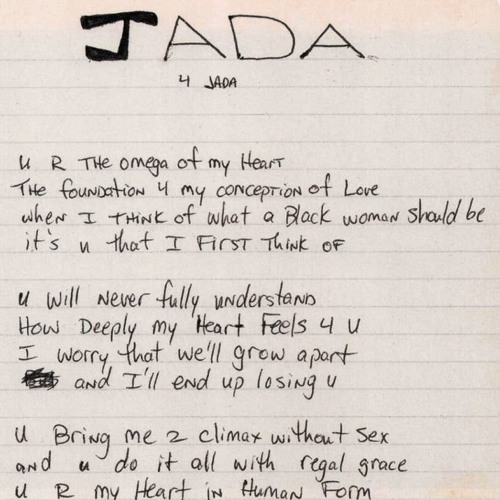 JADA
4 JADA
U R THE omega of my HeART
THE foundation 4 my conception of Love
when I THINK of what a Black woman should be
it's u that I First Think of
u will never fully understand
How Deeply my Heart Feels 4 U
I worry that we'll grow apart
and I'll end up losing u
U Bring me 2 climax without sex
and u do it all with regal grace
U R my Heart in Human Form